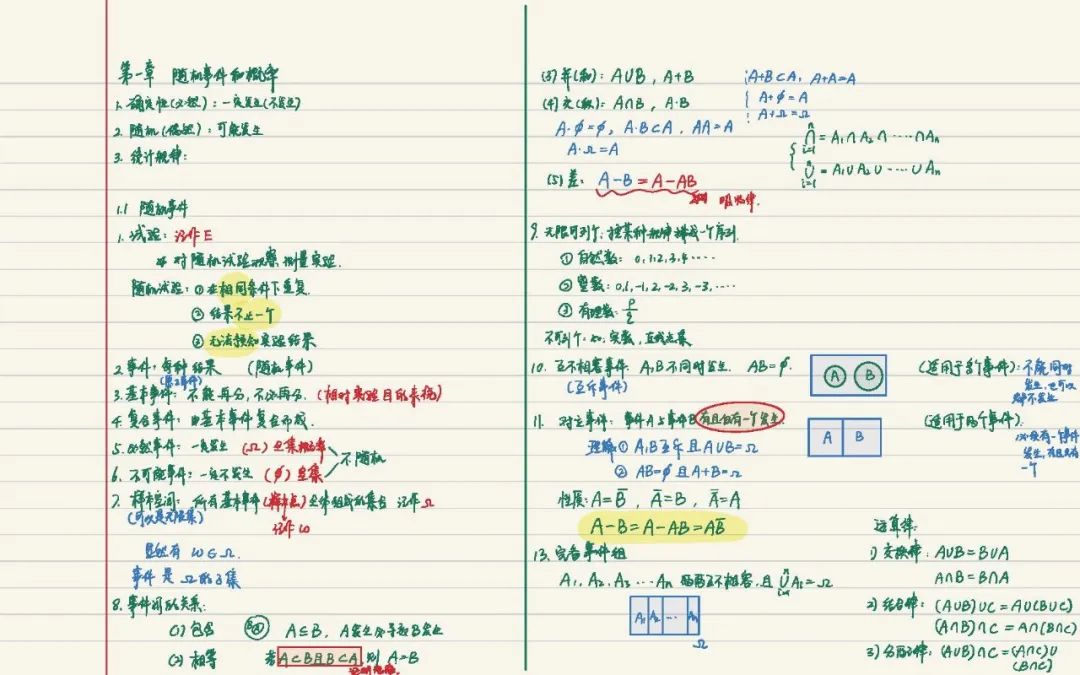 第一章 随机事件和概率
1. 确定性(必然)：一定发生(不发生)
2. 随机(偶然)：可能发生
3. 统计规律：
1.1 随机事件
1. 试验：记作E
对随机试验观察 测量实验.
随机试验：① 在相同条件下重复.
② 结果不止一个
③ 无法预知实验结果
2. 事件：每种结果 (随机事件)
3. 基本事件：不能再分，不必再分. (相对实验目的来说)
4. 复合事件：由基本事件复合而成.
5. 必然事件：一定发生 (Ω) 全集
6. 不可能事件：一定不发生 (φ) 空集
不随机
7. 样本空间：所有基本事件(样本点)全体组成的集合 记作Ω
(可以是无限集)
记作 ω
显然有 ω∈Ω.
事件是Ω的子集
8. 事件间的关系：
(1) 包含 A⊆B，A发生必导致B发生
(2) 相等 若A⊂B且B⊂A，则 A=B
(3) 并(和)：A∪B，A+B
A+B⊂A，A+A=A
A+φ=A
A+Ω=Ω
(4) 交(积)：A∩B，A·B
A·φ=φ，A·B⊂A，AA=A
A·Ω=A
n∩i=1 = A₁∩A₂∩……∩Aₙ
n∪i=1 = A₁∪A₂∪……∪Aₙ
(5) 差：A−B=A−AB
吸收律.
9. 无限可列个：按某种规律排成一个序列.
① 自然数：0,1,2,3,4……
② 整数：0,1,-1,2,-2,3,-3,……
③ 有理数：p/q
不可列个：如，实数，直线点集
10. 互不相容事件：A,B不同时发生. AB=φ.
(互斥事件)
A B
(适用于多个事件)：不能同时
发生，也可以
都不发生.
11. 对立事件：事件A与事件B有且仅有一个发生.
A B
(适用于两个事件)
发生，有且只有
一个
理解 ① A,B互斥且A∪B=Ω
② AB=φ且A+B=Ω
性质：A=B̄，Ā=B，Ā=A
A−B=A−AB=AB̄
13. 完备事件组
A₁，A₂，A₃…Aₙ 两两互不相容，且 n∪i=1 Aᵢ=Ω
A₁ A₂ … Aₙ
Ω
运算律：
1) 交换律：A∪B=B∪A
A∩B=B∩A
2) 结合律：(A∪B)∪C=A∪(B∪C)
(A∩B)∩C=A∩(B∩C)
3) 分配律：(A∪B)∩C=(A∩C)∪
(B∩C)